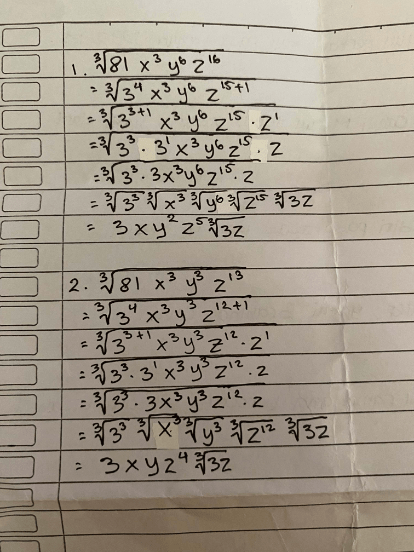 1. ∛(81 x³ y⁶ z¹⁶)
= ∛(3⁴ x³ y⁶ z¹⁵⁺¹)
= ∛(3³⁺¹ x³ y⁶ z¹⁵ · z¹)
= ∛(3³ · 3¹ x³ y⁶ z¹⁵ · z)
= ∛(3³ · 3x³ y⁶ z¹⁵ · z)
= ∛(3³) ∛(x³) ∛(y⁶) ∛(z¹⁵) ∛(3z)
= 3 x y² z⁵ ∛(3z)
2. ∛(81 x³ y³ z¹³)
= ∛(3⁴ x³ y³ z¹²⁺¹)
= ∛(3³⁺¹ x³ y³ z¹² · z¹)
= ∛(3³ · 3¹ x³ y³ z¹² · z)
= ∛(3³ · 3x³ y³ z¹² · z)
= ∛(3³) ∛(x³) ∛(y³) ∛(z¹²) ∛(3z)
= 3 x y z⁴ ∛(3z)